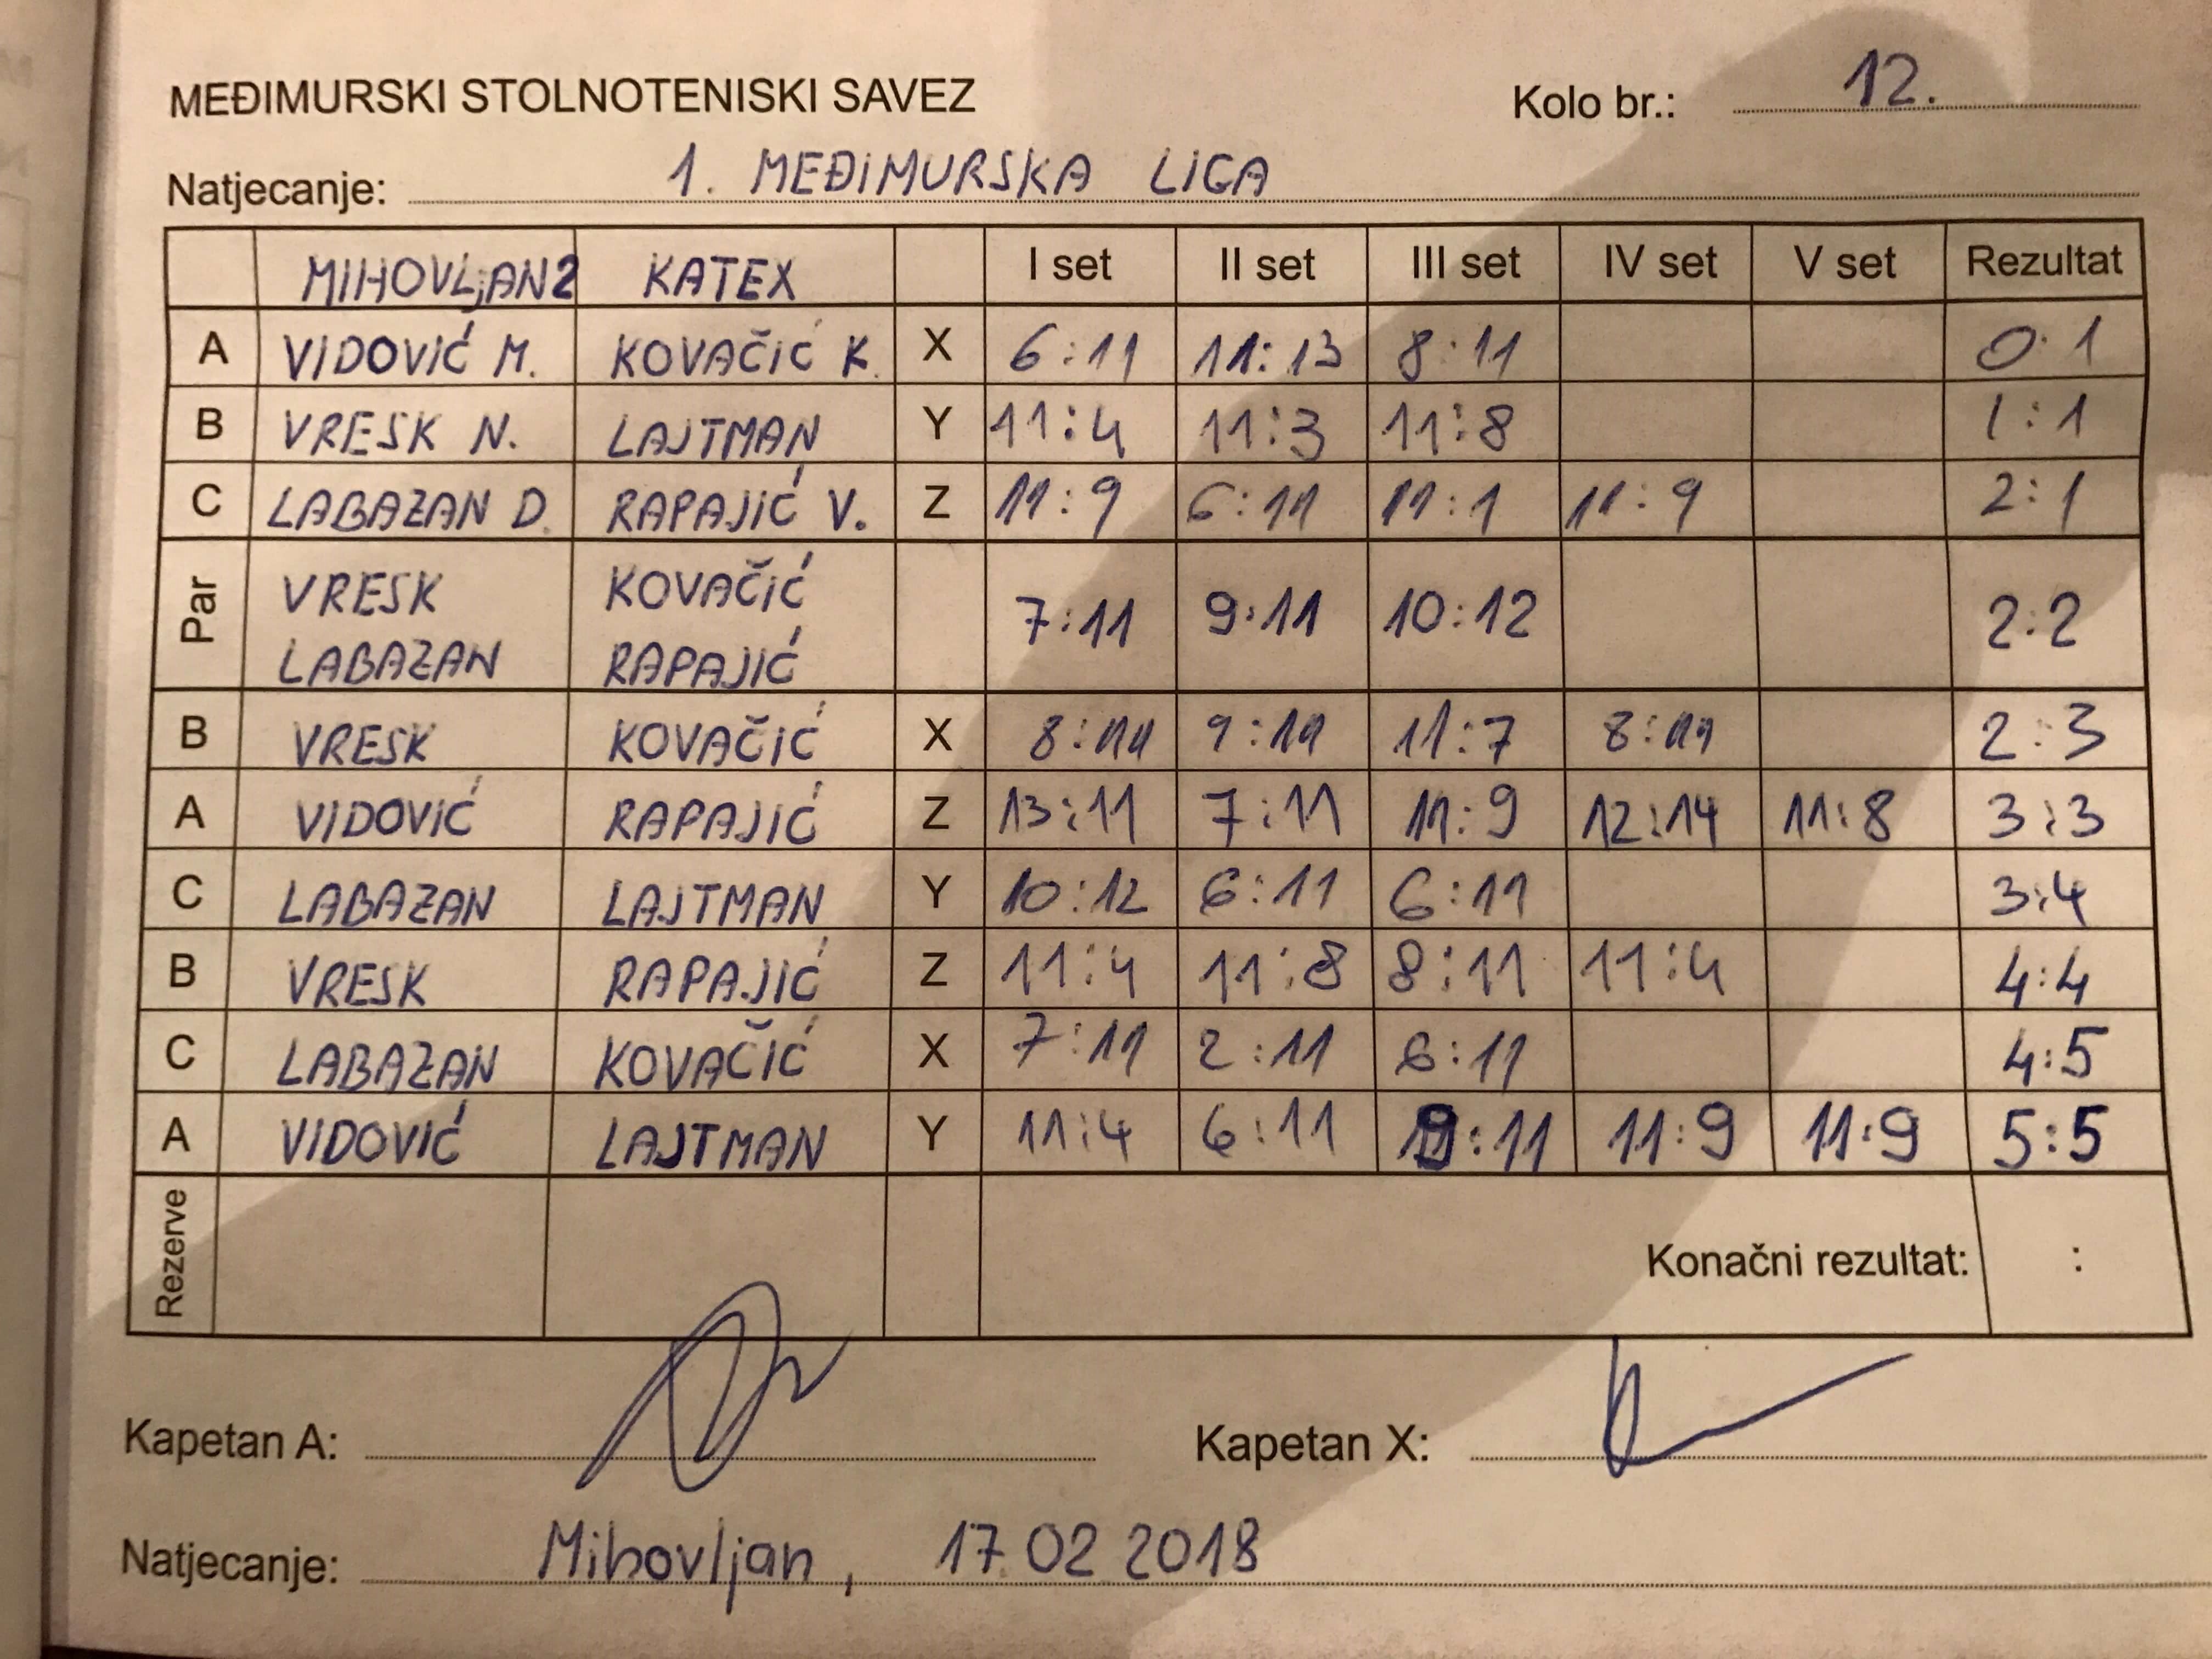 MEĐIMURSKI STOLNOTENISKI SAVEZ Kolo br.: 12.
Natjecanje: 1. MEĐIMURSKA LIGA
MIHOVLJAN2 KATEX I set II set III set IV set V set Rezultat
A VIDOVIĆ M. KOVAČIĆ K. X 6:11 11:13 8:11 0:1
B VRESK N. LAJTMAN Y 11:4 11:3 11:8 1:1
C LABAZAN D. RAPAJIĆ V. Z 11:9 6:11 11:1 11:9 2:1
Par VRESK KOVAČIĆ 7:11 9:11 10:12 2:2
LABAZAN RAPAJIĆ
B VRESK KOVAČIĆ X 8:11 9:11 11:7 8:11 2:3
A VIDOVIĆ RAPAJIĆ Z 13:11 7:11 11:9 12:14 11:8 3:3
C LABAZAN LAJTMAN Y 10:12 6:11 6:11 3:4
B VRESK RAPAJIĆ Z 11:4 11:8 8:11 11:4 4:4
C LABAZAN KOVAČIĆ X 7:11 2:11 6:11 4:5
A VIDOVIĆ LAJTMAN Y 11:4 6:11 9:11 11:9 11:9 5:5
Rezerve Konačni rezultat: :
Kapetan A: Kapetan X:
Natjecanje: Mihovljan, 17.02 2018